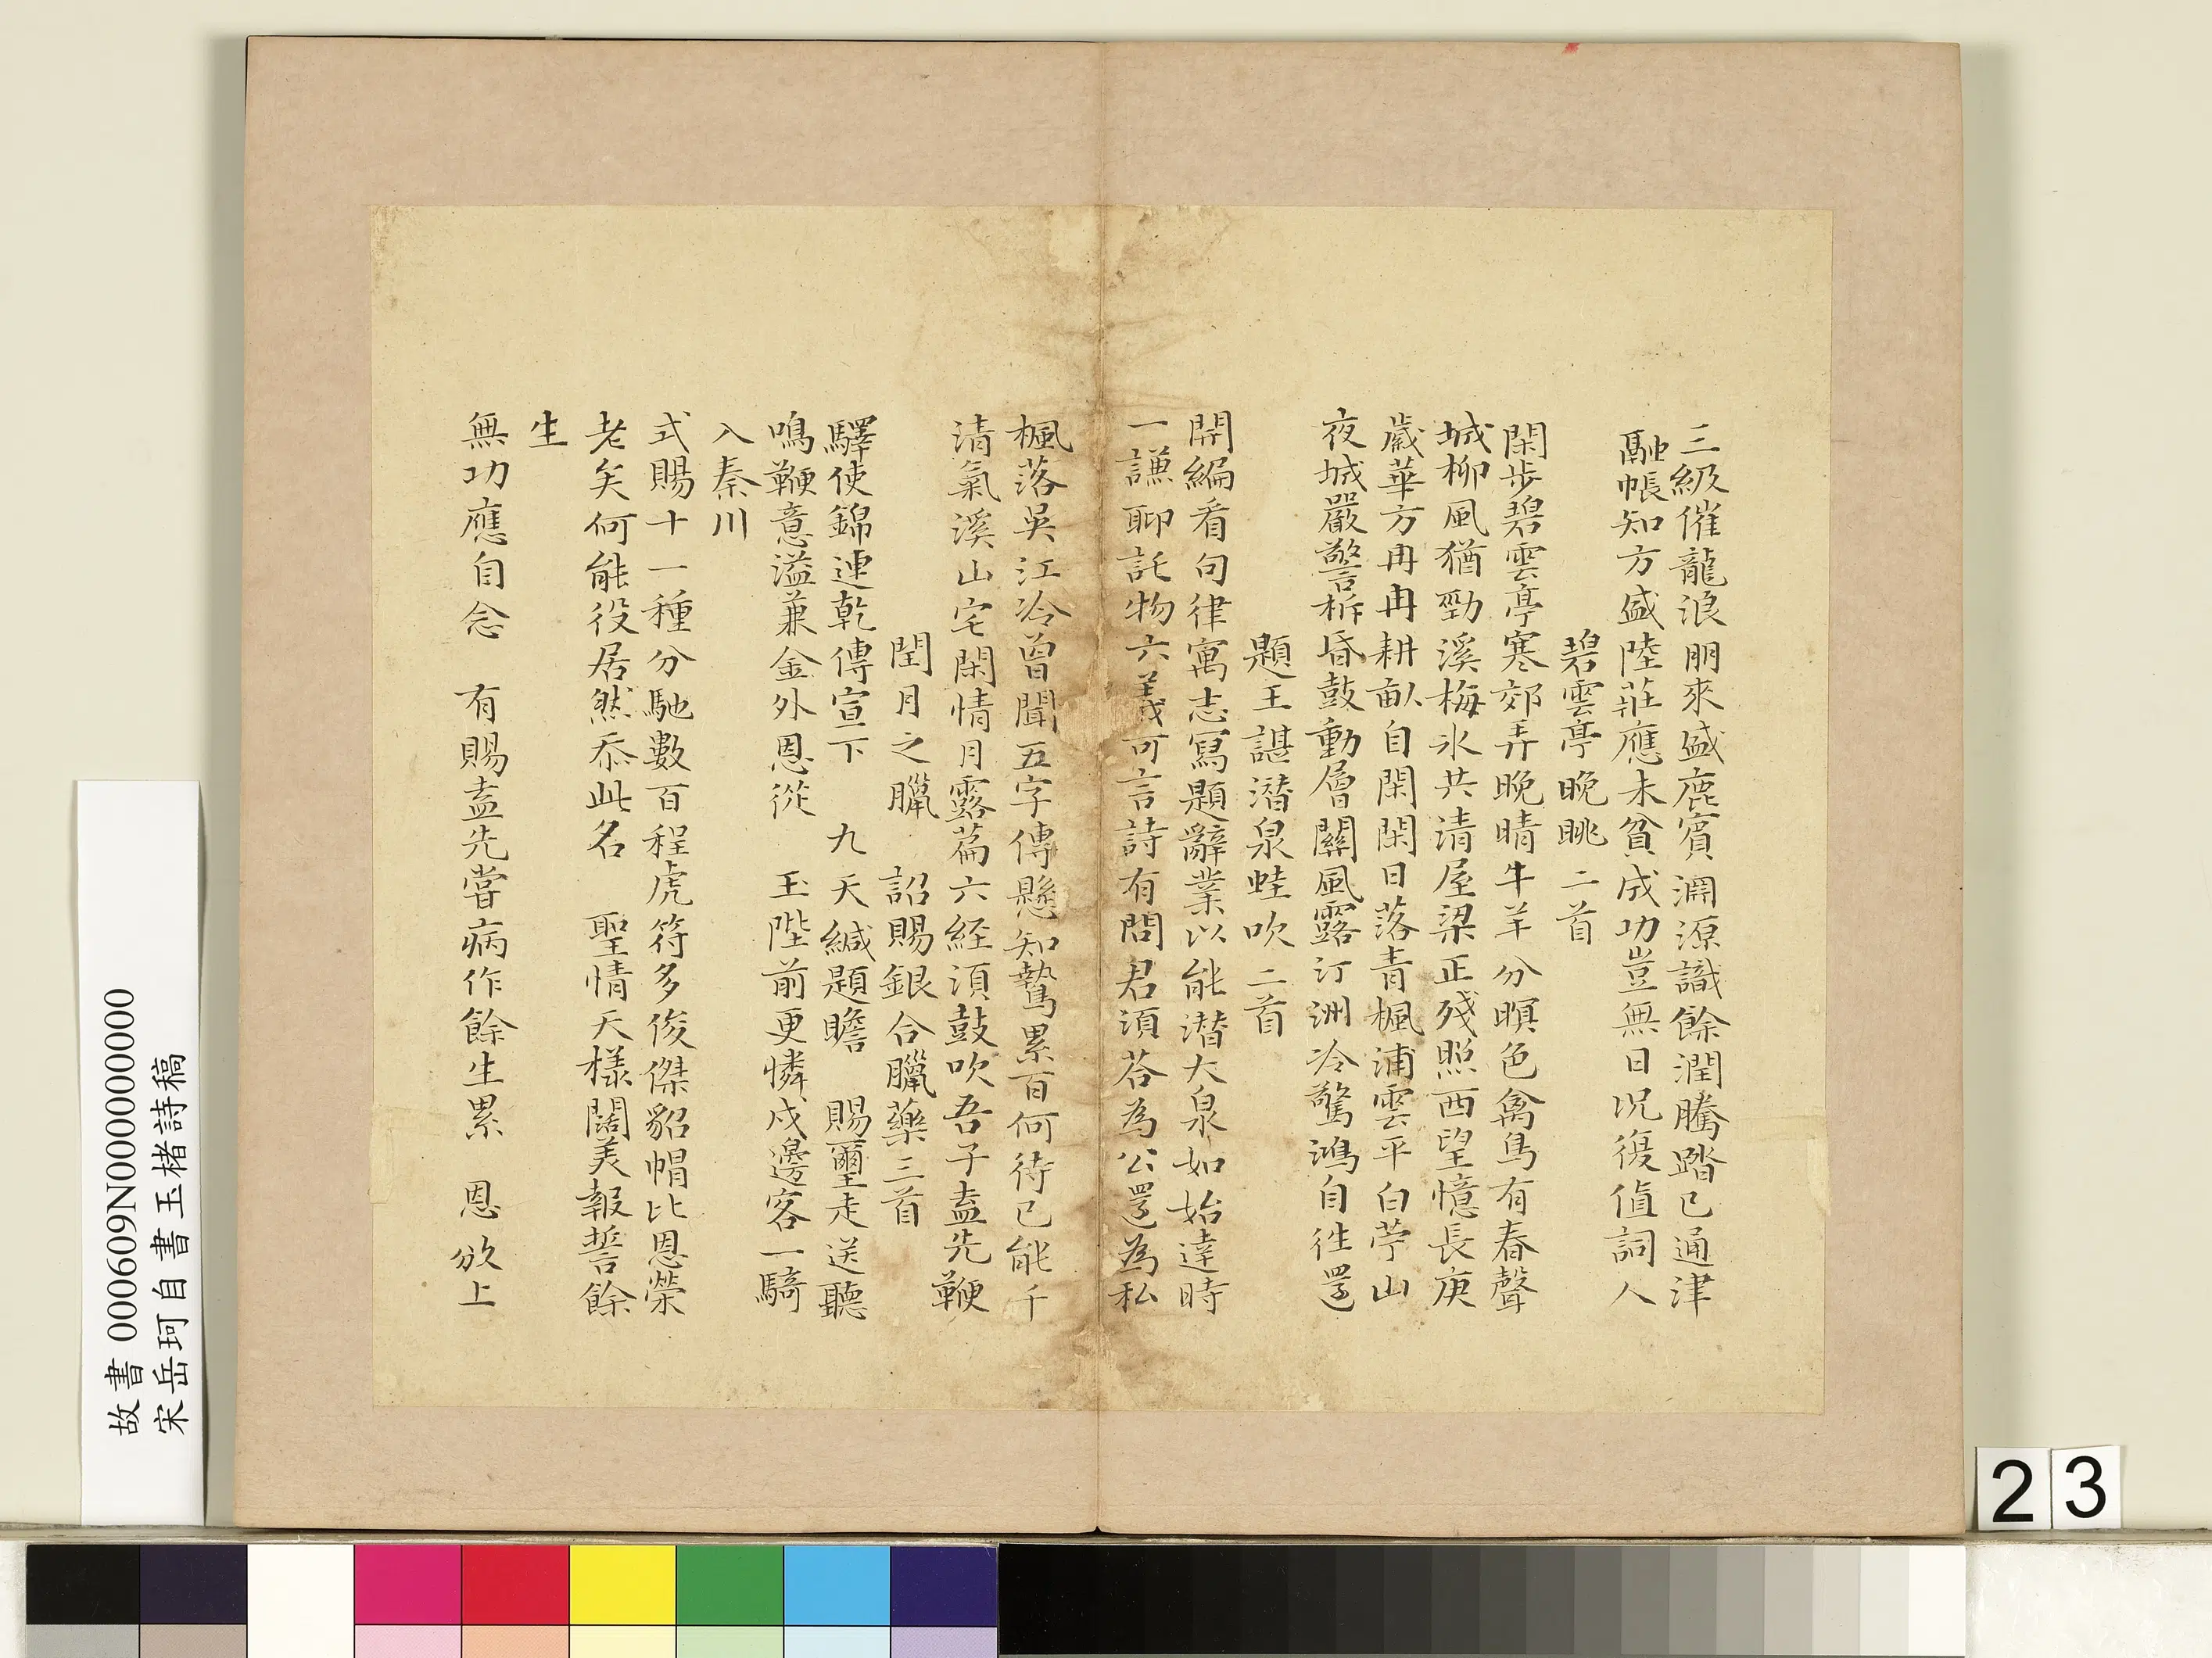 三級催龍浪朋來盛鹿賓淵源識餘潤騰踏已通津
融帳知方盛陸莊應未貧成功豈無日況復值詞人
碧雲亭晚眺二首
閑步碧雲亭寒郊弄晚晴牛羊分暝色禽鳥有春聲
城柳風猶勁溪梅冰共清屋梁正殘照西望憶長庚
歲華方冉冉耕畝自閑閑日落青楓浦雲平白苧山
夜城嚴警柝昏鼓動層關風露汀洲冷驚鴻自往還
題王諶潛泉蛙吹二首
開編看句律寓志寫題辭業以能潛大泉如始達時
一謙聊託物六義可言詩有問君須荅為公還為私
楓落吳江冷曾聞五字傳懸知鷙累百何待已能千
清氣溪山宅閑情月露篇六経須鼓吹吾子盍先鞭
閏月之臘 詔賜銀合臘藥三首
驛使錦連乾傳宣下 九天緘題瞻 賜璽走送聽
鳴鞭意溢兼金外恩從 玉陛前更憐戍邊客一騎
入秦川
式賜十一種分馳數百程虎符多俊傑貂帽比恩榮
老矣何能役居然忝此名 聖情天樣闊美報誓餘
生
無功應自念 有賜盍先嘗病作餘生累 恩攽上
故書 000609N000000000
宋岳珂自書玉楮詩稿
23